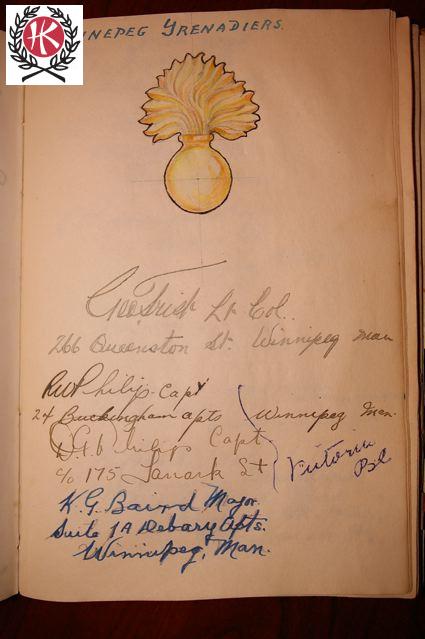 HK
NNEPEG GRENADIERS.
Geo Trist Lt Col.
266 Queenston St. Winnipeg Man
RW Philip Capt
24 Buckingham apts Winnipeg Man.
Philips Capt
c/o 175 Lanark St
Victoria
K.G. Baird Major.
Suite 1A Debary Apts.
Winnipeg, Man.